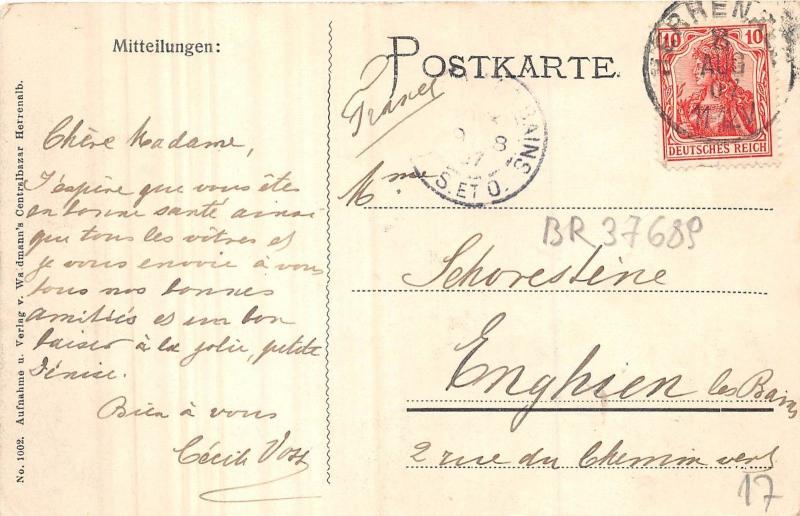 Mitteilungen:
POSTKARTE.
No. 1002. Aufnahme u. Verlag v. Waldmann's Centralbazar Herrenalb.
Chère Madame,
J'espère que vous êtes
en bonne santé ainsi
que tous les vôtres et
je vous envoie à vous
tous nos bonnes
amitiés et un bon
baiser à la jolie, petite
Dénise.
Bien à vous
Cécile Voss
France
10 10
DEUTSCHES REICH
HERRENALB
8
AUG
BAINS
9 8
07
S. ET O.
Mme
BR 37689
Schorestène
Enghien les Bains
2 rue du Chemin vert
17